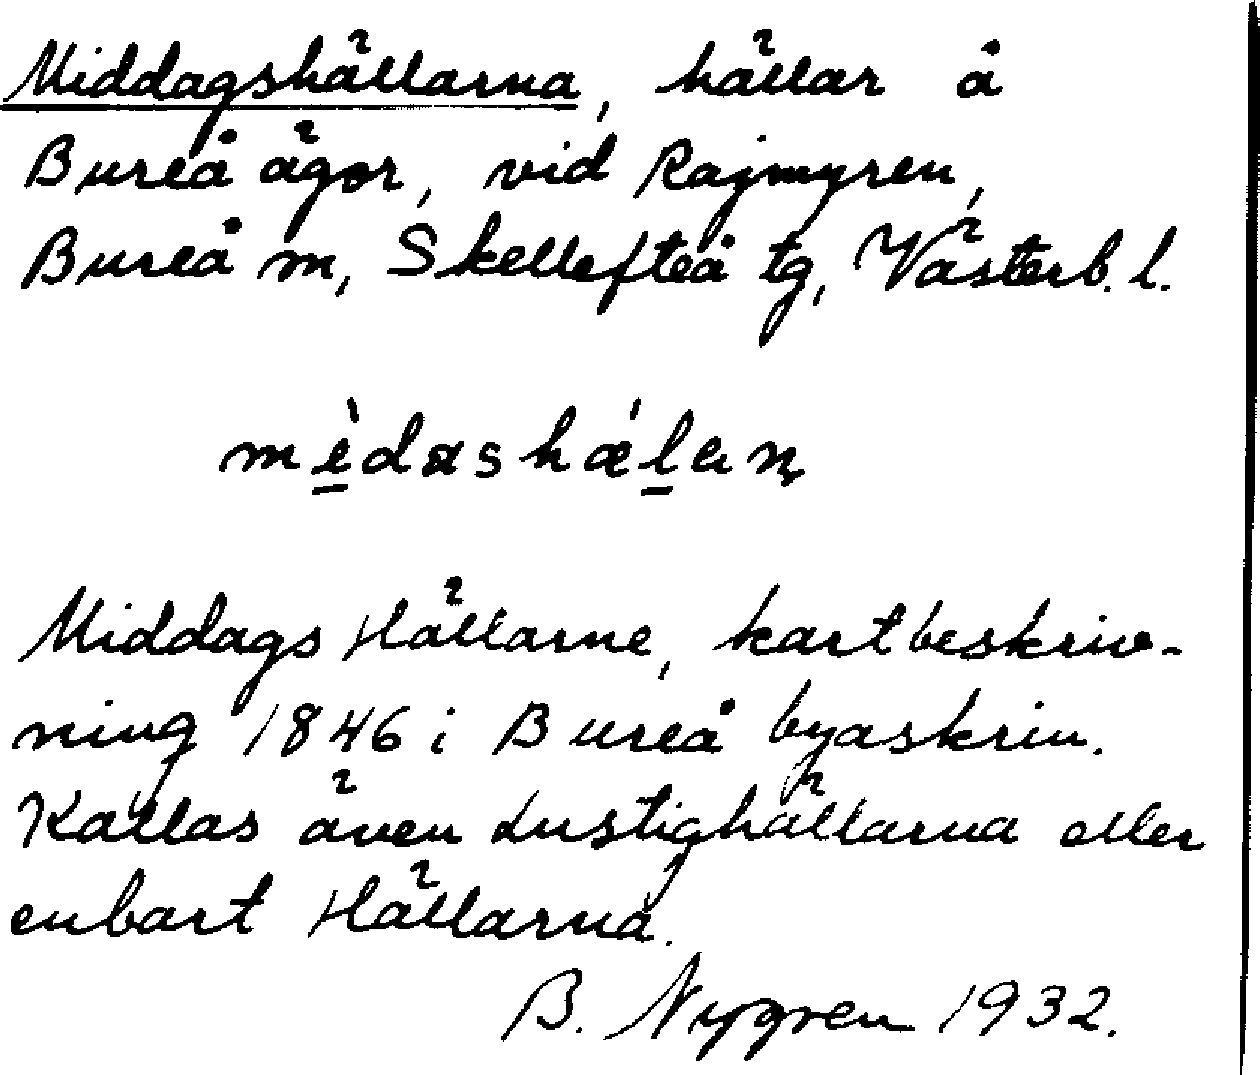 Middagshällarna, hällar å
Bureå ägor, vid Rajmyren,
Bureå m, Skellefteå tg, Västerb. l.
mèdashǽlan
Middags Hällarne, kartbeskriv-
ning 1846 i Bureå byaskrin.
Kallas även Lustighällarna eller
enbart Hällarna.
B. Nygren 1932.